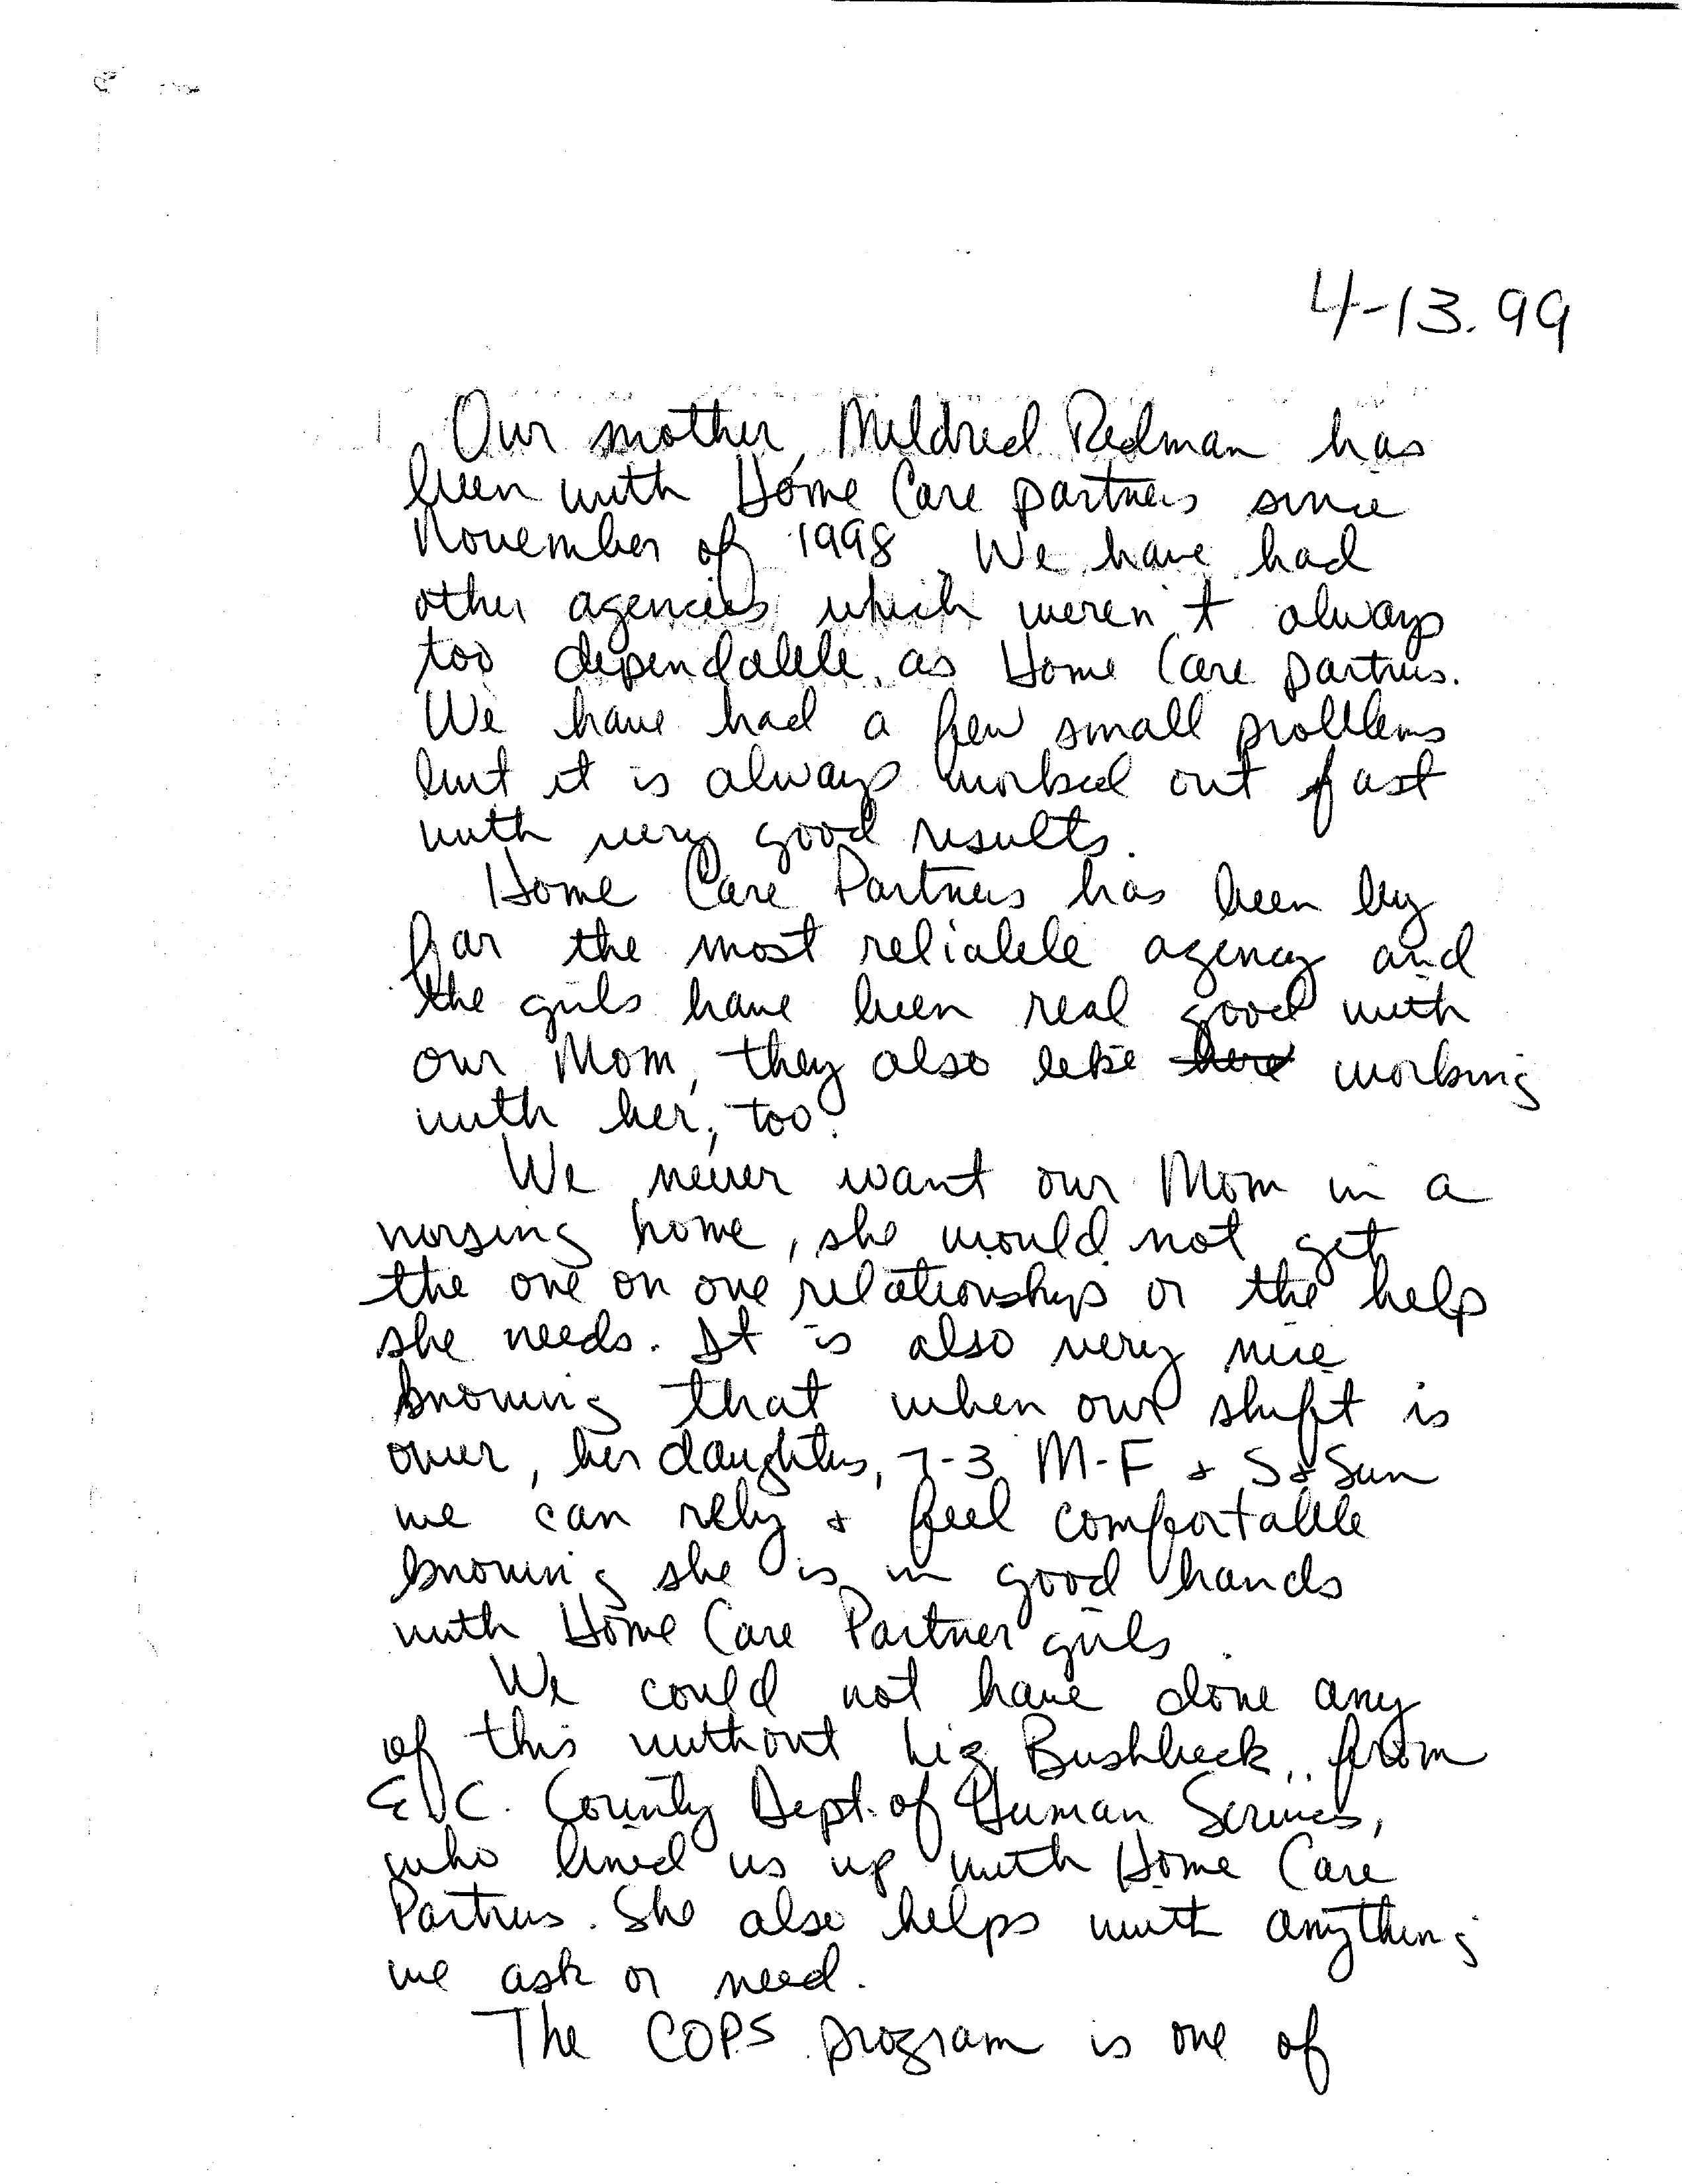 4-13.99
Our mother, Mildred Redman has
been with Home Care partners since
November of 1998. We have had
other agencies which weren't always
too dependable, as Home Care partners.
We have had a few small problems
but it is always worked out fast
with very good results.
Home Care Partners has been by
far the most reliable agency and
the girls have been real good with
our Mom, they also like here working
with her, too.
We never want our Mom in a
nursing home, she would not get
the one on one relationships or the help
she needs. It is also very nice
knowing that when our shift is
over, her daughters, 7-3 M-F & S & Sun
we can rely & feel comfortable
knowing she is in good hands
with Home Care Partner girls.
We could not have done any
of this without Liz Bushbeck, from
E.C. County Dept. of Human Services,
who lined us up with Home Care
Partners. She also helps with anything
we ask or need.
The COPS program is one of